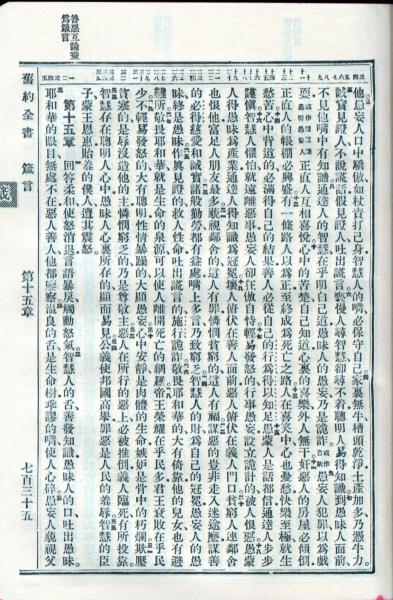 善惡互論兼
爲箴言
他愚妄人口中驕傲如杖責打己身智慧人的嘴必保守自己家裏無牛槽頭乾淨土產加多乃憑牛力
誠實見證人不說謊話假見證人吐出謊言褻慢人尋智慧卻尋不着聰明人易得知識到愚昧人面前
不見他嘴中有知識通達人的智慧在乎明白己道愚昧人的愚妄乃是詭詐或作自欺愚妄人犯罪以爲戲
耍正直人互相喜悅心中的苦楚自己知道心裏的喜樂外人無干奸惡人的房屋必傾倒
正直人的帳棚必興盛有一條路人以爲正至終成爲死亡之路人在喜笑中心也憂愁快樂至極就生
愁苦心中背道的必滿得自己的結果善人必從自己的行爲得以知足愚蒙人是話都信通達人步步
謹愼智慧人懼怕就遠離惡事愚妄人卻狂傲自恃輕易發怒的行事愚妄設立詭計的被人恨惡愚蒙
人得愚昧爲產業通達人得知識爲冠冕壞人俯伏在善人面前惡人俯伏在義人門口貧窮人連鄰舍
也恨他富足人朋友最多藐視鄰舍的這人有罪憐憫貧窮的這人有福謀惡的豈非走入迷途麼謀善
的必得慈愛和誠實諸般勤勞都有益處嘴上多言乃致窮乏智慧人的財爲自己的冠冕愚妄人的愚
昧終是愚昧作眞見證的救人性命吐出謊言的施行詭詐敬畏耶和華的大有倚靠他的兒女也有避
難所敬畏耶和華就是生命的泉源可以使人離開死亡的網羅帝王榮耀在乎民多君王衰敗在乎民
少不輕易發怒的大有聰明性情暴躁的大顯愚妄心中安靜是肉體的生命嫉妒是骨中的朽爛欺壓
貧寒的是辱沒造他的主憐憫窮乏的乃是尊敬主惡人在所行的惡上必被推倒義人臨死有所投靠
智慧存在聰明人心中愚昧人心裏所存的顯而易見公義使邦國高舉罪惡是人民的羞辱智慧的臣
子蒙王恩惠貽羞的僕人遭其震怒。
第十五章 回答柔和使怒消退言語暴戾觸動怒氣智慧人的舌善發知識愚昧人的口吐出愚昧
耶和華的眼目無處不在惡人善人他都鑒察溫良的舌是生命樹乖謬的嘴使人心碎愚妄人藐視父
舊約全書 箴言 第十五章 七百三十五